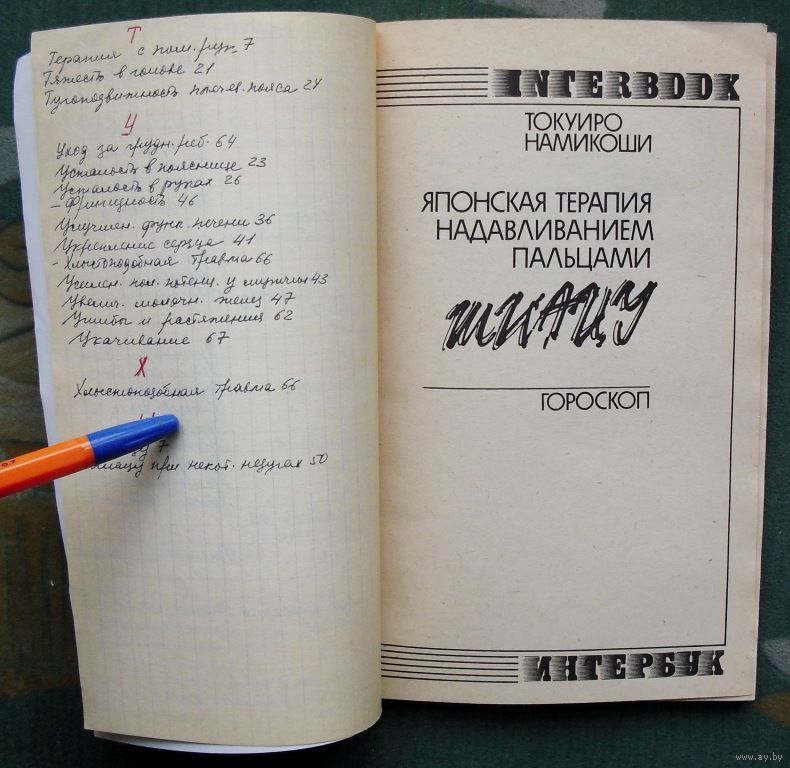 Т
Терапия с пом. рук 7
Тяжесть в голове 21
Тугоподвижность плечев. пояса 24
У
Уход за грудн. реб. 64
Усталость в пояснице 23
Усталость в руках 26
- Фригидность 46
Улучшен. функ. печени 36
Укрепление сердца 41
- Хлыстоподобная травма 66
Усилен. пол. потенц. у мужчин 43
Увелич. молочн. желез 47
Ушибы и растяжения 62
Укачивание 67
Х
Хлыстоподобная травма 66
7
при некот. недугах 50
INTERBOOK
ТОКУИРО
НАМИКОШИ
ЯПОНСКАЯ ТЕРАПИЯ
НАДАВЛИВАНИЕМ
ПАЛЬЦАМИ
ШИАЦУ
ГОРОСКОП
ИНТЕРБУК
www.ay.by